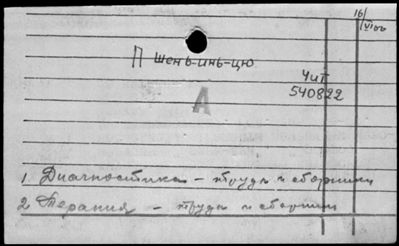 16/
VI 60
П Шень-инь-цю
Чит
540822
А
1 Диагностика - труды и сборники
2 Терапия - труды и сборники